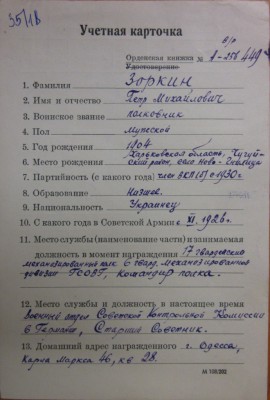 35/1В
Учетная карточка
б/р
Орденская книжка № А-256449
Удостоверение
1. Фамилия Зоркин
2. Имя и отчество Петр Михайлович
3. Воинское звание полковник
4. Пол Мужской
5. Год рождения 1904
6. Место рождения Харьковская область, Чугуев-
ский район, село Ново-
7. Партийность (с какого года) член ВКП(б) с 1930 г.
8. Образование Низшее
9. Национальность Украинец
10. С какого года в Советской Армии с XI. 1926 г.
11. Место службы (наименование части) и занимаемая
должность в момент награждения 17 гвардейский
механизированный полк 6 гвард. механизированной
дивизии ГСОВГ, Командир полка.
12. Место службы и должность в настоящее время
Военный отдел Советской контрольной Комиссии
в Германии, Старший Советник.
13. Домашний адрес награжденного г. Одесса,
Карла Маркса 46, кв 28.